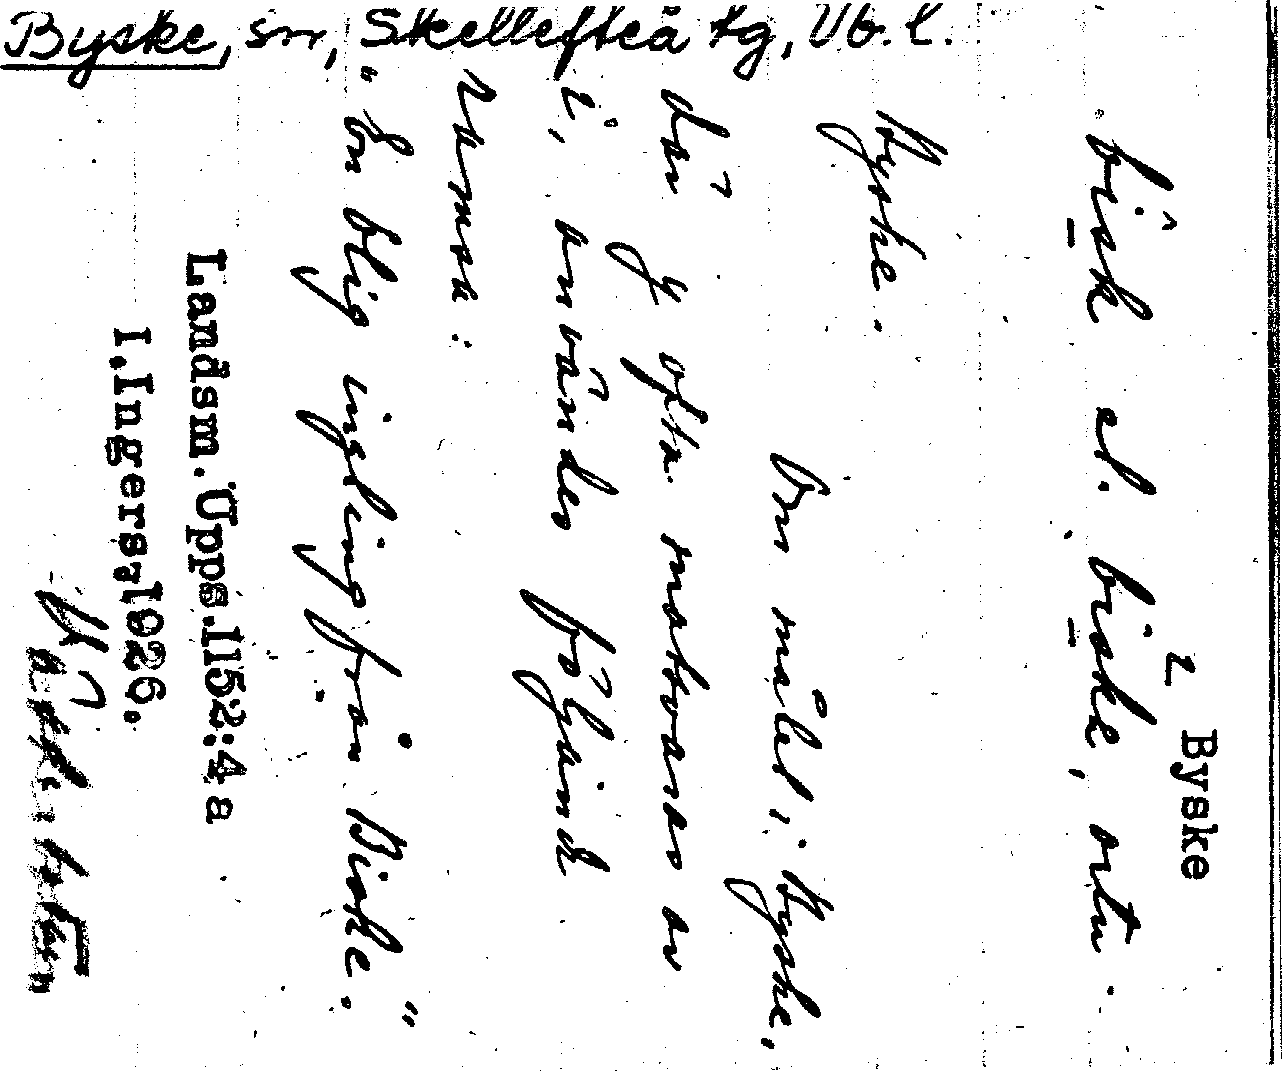 Byske, sn, Skellefteå tg, Vb. l.
Byske
bîsk el. bìske, ortn.
Byske.
Om målet i Byske,
där y ofta motsvaras av
i, användes följande
ramsa:
"En blig ingling från Biske."
Landsm. Upps. 1152:4 a
I. Ingers, 1926.